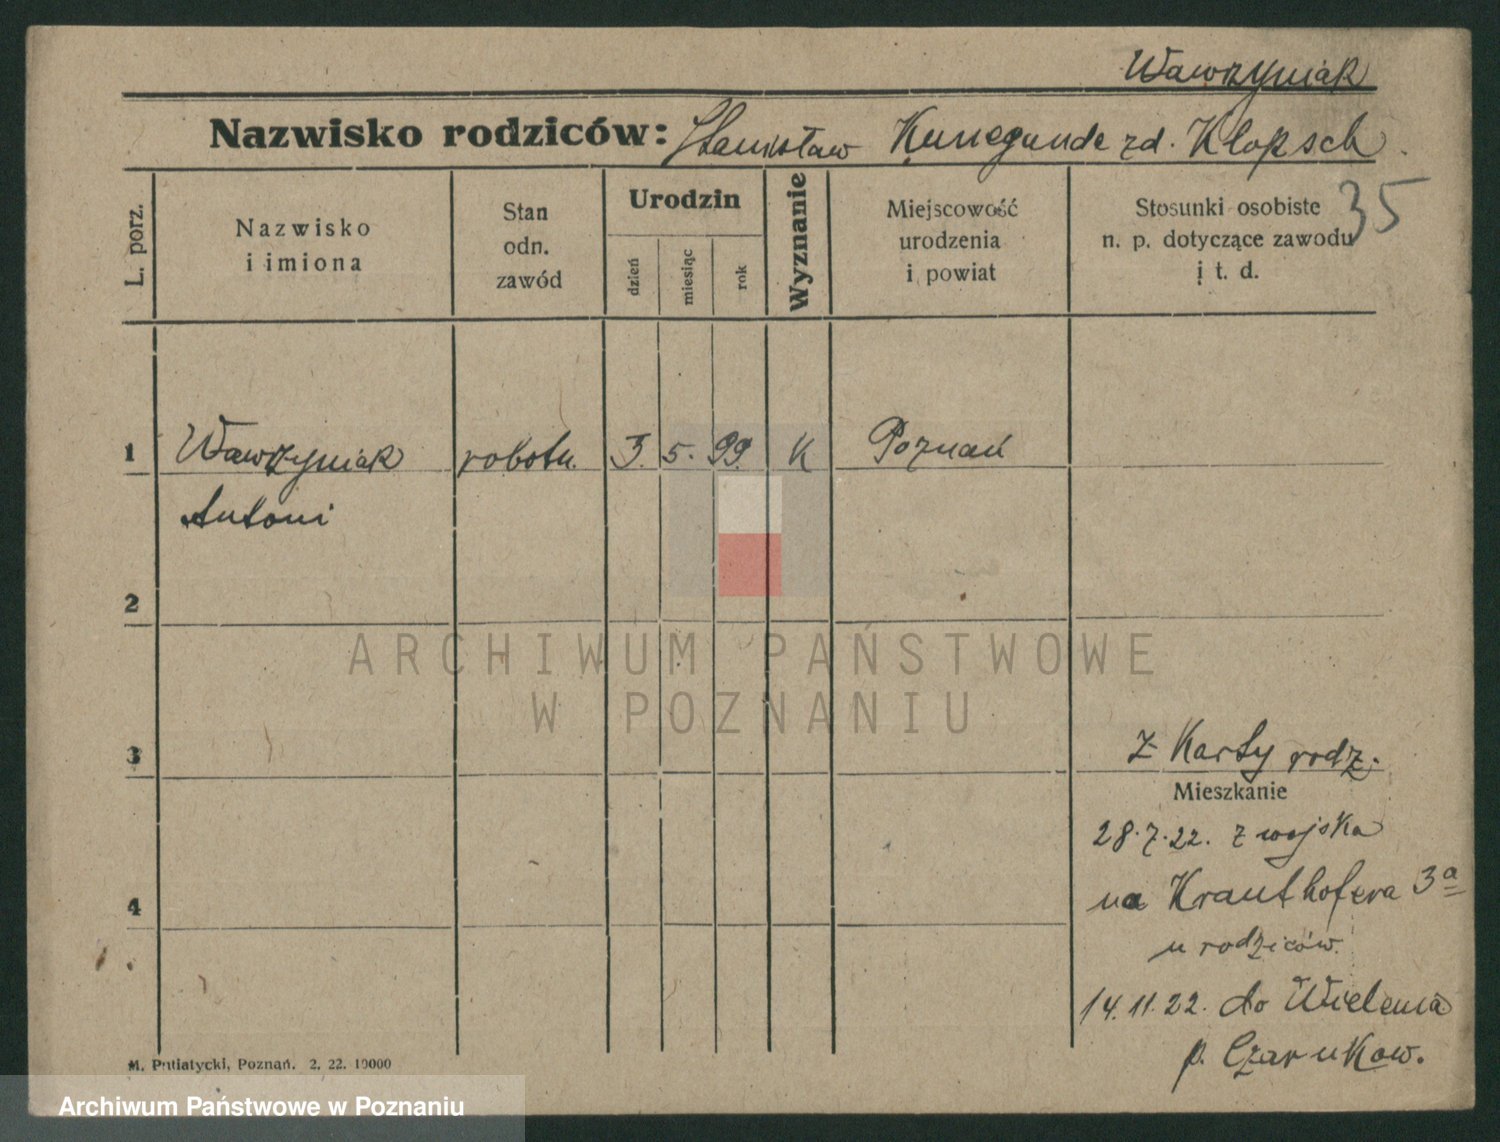 Wawrzyniak
Nazwisko rodziców: Stanisław Kunegunde zd. Klopsch.
35
L. porz.
Nazwisko
i imiona
Stan
odn.
zawód
Urodzin
dzień
miesiąc
rok
Wyznanie
Miejscowość
urodzenia
i powiat
Stosunki osobiste
n. p. dotyczące zawodu
i t. d.
1 Wawrzyniak robotn. 3. 5. 99. K Poznań
Antoni
2
ARCHIWUM PAŃSTWOWE
W POZNANIU
3
z Karty rodz.
Mieszkanie
28.7.22. z wojska
4
na Krauthofera 3a
u rodziców.
14.11.22. do Wielenia
p. Czarnkow.
M. Putiatycki, Poznań. 2. 22. 10000
Archiwum Państwowe w Poznaniu